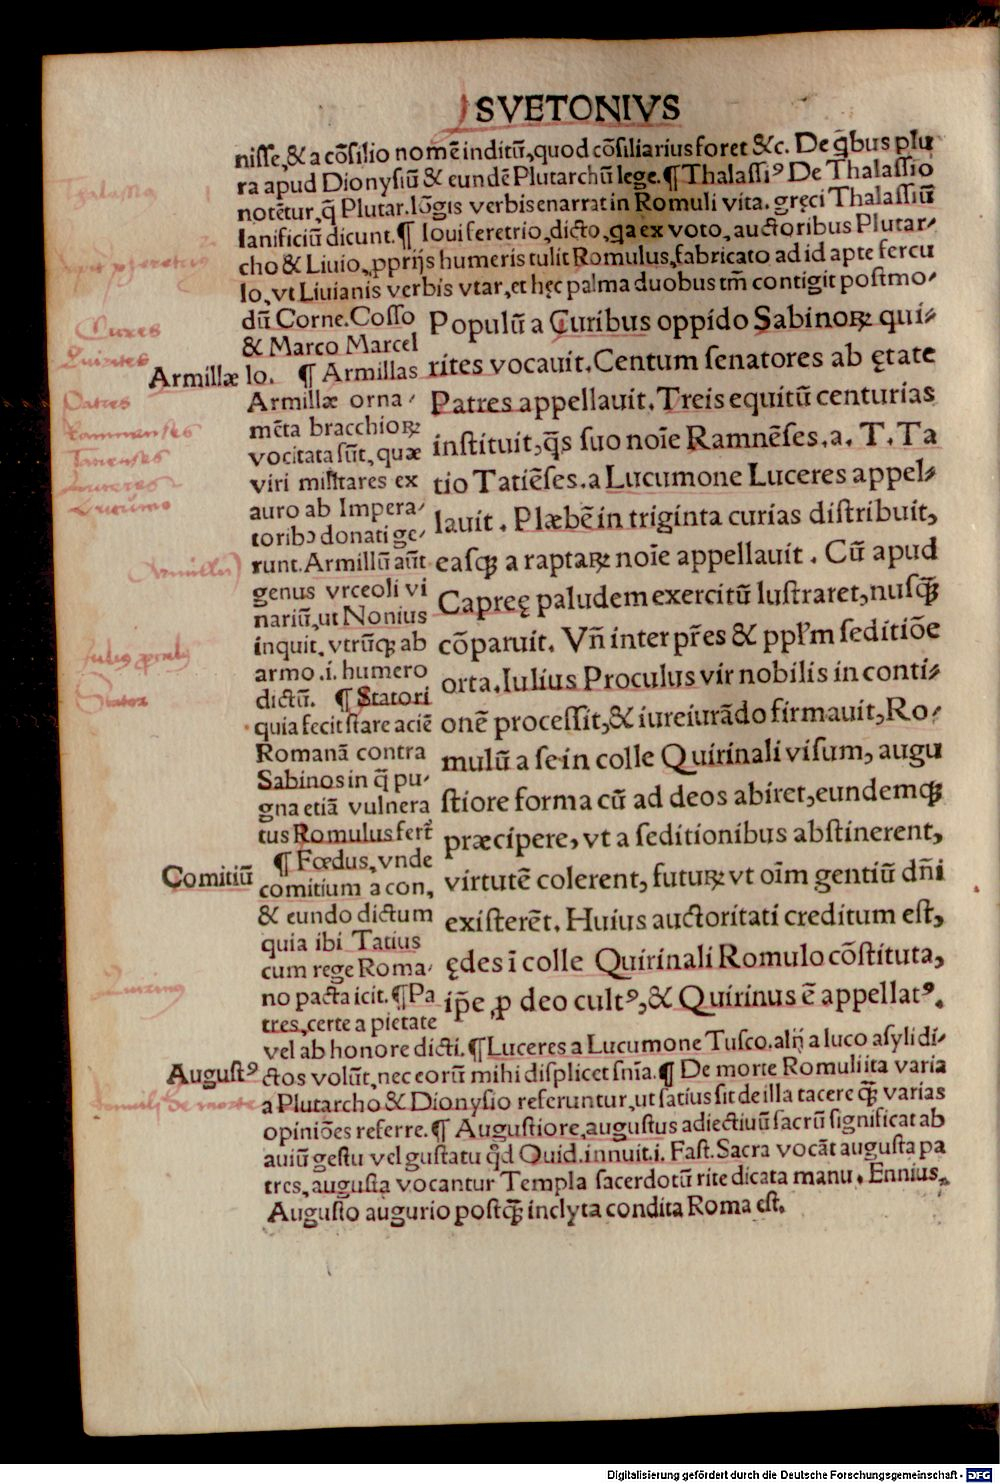 SVETONIVS
nisse, & a cõsilio nomẽ inditũ, quod cõsiliarius foret &c. De q̃bus plu
ra apud Dionysiũ & eundẽ Plutarchũ lege. ¶ Thalassiꝰ De Thalassio
notẽtur, q̃ Plutar. lõgis verbis enarrat in Romuli vita. gręci Thalassiũ
lanificiũ dicunt. ¶ Ioui feretrio, dicto, qa ex voto, auctoribus Plutar⸗
cho & Liuio, ꝓprijs humeris tulit Romulus, fabricato ad id apte fercu
lo, vt Liuianis verbis vtar, et hęc palma duobus tm̃ contigit postmo⸗
dũ Corne. Cosso
& Marco Marcel
lo. ¶ Armillas
Armillæ
Armillæ orna⸗
mẽta bracchioꝝ
vocitata sũt, quæ
viri militares ex
auro ab Impera⸗
toribꝰ donati ge⸗
runt. Armillũ aũt
genus vrceoli vi
nariũ, ut Nonius
inquit. vtrũqꝫ ab
armo .i. humero
dictũ. ¶ Statori
quia fecit stare aciẽ
Romanã contra
Sabinos in q̃ pu⸗
gna etiã vulnera
tus Romulus fert̃
¶ Fœdus, vnde
Comitiũ
comitium a con,
& eundo dictum
quia ibi Tatius
cum rege Roma⸗
no pacta icit. ¶ Pa
tres, certe a pietate
Populũ a Curibus oppido Sabinoꝝ qui⸗
rites vocauit. Centum senatores ab ętate
Patres appellauit. Treis equitũ centurias
instituit, q̃s suo noĩe Ramnẽses. a. T. Ta
tio Tatiẽses. a Lucumone Luceres appel⸗
lauit. Plæbẽ in triginta curias distribuit,
easqꝫ a raptaꝝ noĩe appellauit. Cũ apud
Capreę paludem exercitũ lustraret, nusqꝫ̃
cõparuit. Vñ inter pr̃es & ppl'm seditiõe
orta. Iulius Proculus vir nobilis in conti⸗
onẽ processit, & iureiurãdo firmauit, Ro⸗
mulũ a se in colle Quirinali visum, augu
stiore forma cũ ad deos abiret, eundemqꝫ
præcipere, vt a seditionibus abstinerent,
virtutẽ colerent, futuꝝ vt oĩm gentiũ dñi
existerẽt. Huius auctoritati creditum est,
ędes ĩ colle Quirinali Romulo cõstituta,
ip̃e ꝓ deo cultꝰ, & Quirinus ẽ appellatꝰ.
vel ab honore dicti. ¶ Luceres a Lucumone Tusco. alij a luco asyli di⸗
Augustꝰ
ctos volũt, nec eorũ mihi displicet sñia. ¶ De morte Romuli ita varia
a Plutarcho & Dionysio referuntur, ut satius sit de illa tacere qꝫ̃ varias
opiniões referre. ¶ Augustiore, augustus adiectiuũ sacrũ significat ab
auiũ gestu vel gustatu q̃d Ouid. innuit. i. Fast. Sacra vocãt augusta pa
tres, augusta vocantur Templa sacerdotũ rite dicata manu. Ennius.
Augusto augurio postqꝫ̃ inclyta condita Roma est.
Thalassus
Cures
Quirites
Patres
Ramnenses
Tatienses
Luceres
Lucumo
Armillum
Iulius proculus
Stator
Quirinus
Romuli de morte
Digitalisierung gefördert durch die Deutsche Forschungsgemeinschaft - DFG